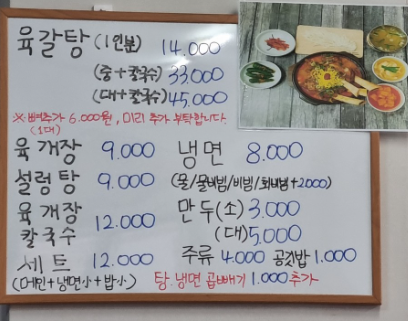 육갈탕 (1인분) 14.000
(중+칼국수) 33.000
(대+칼국수) 45.000
※뼈추가 6.000원, 미리 추가 부탁합니다.
(1대)
육개장 9.000
설렁탕 9.000
육개장
칼국수 12.000
세트 12.000
(메인+냉면小+밥小)
냉면 8.000
(물/물비빔/비빔/회비빔+2.000)
만두(소) 3.000
(대) 5.000
주류 4.000 공깃밥 1.000
탕.냉면 곱빼기 1.000추가